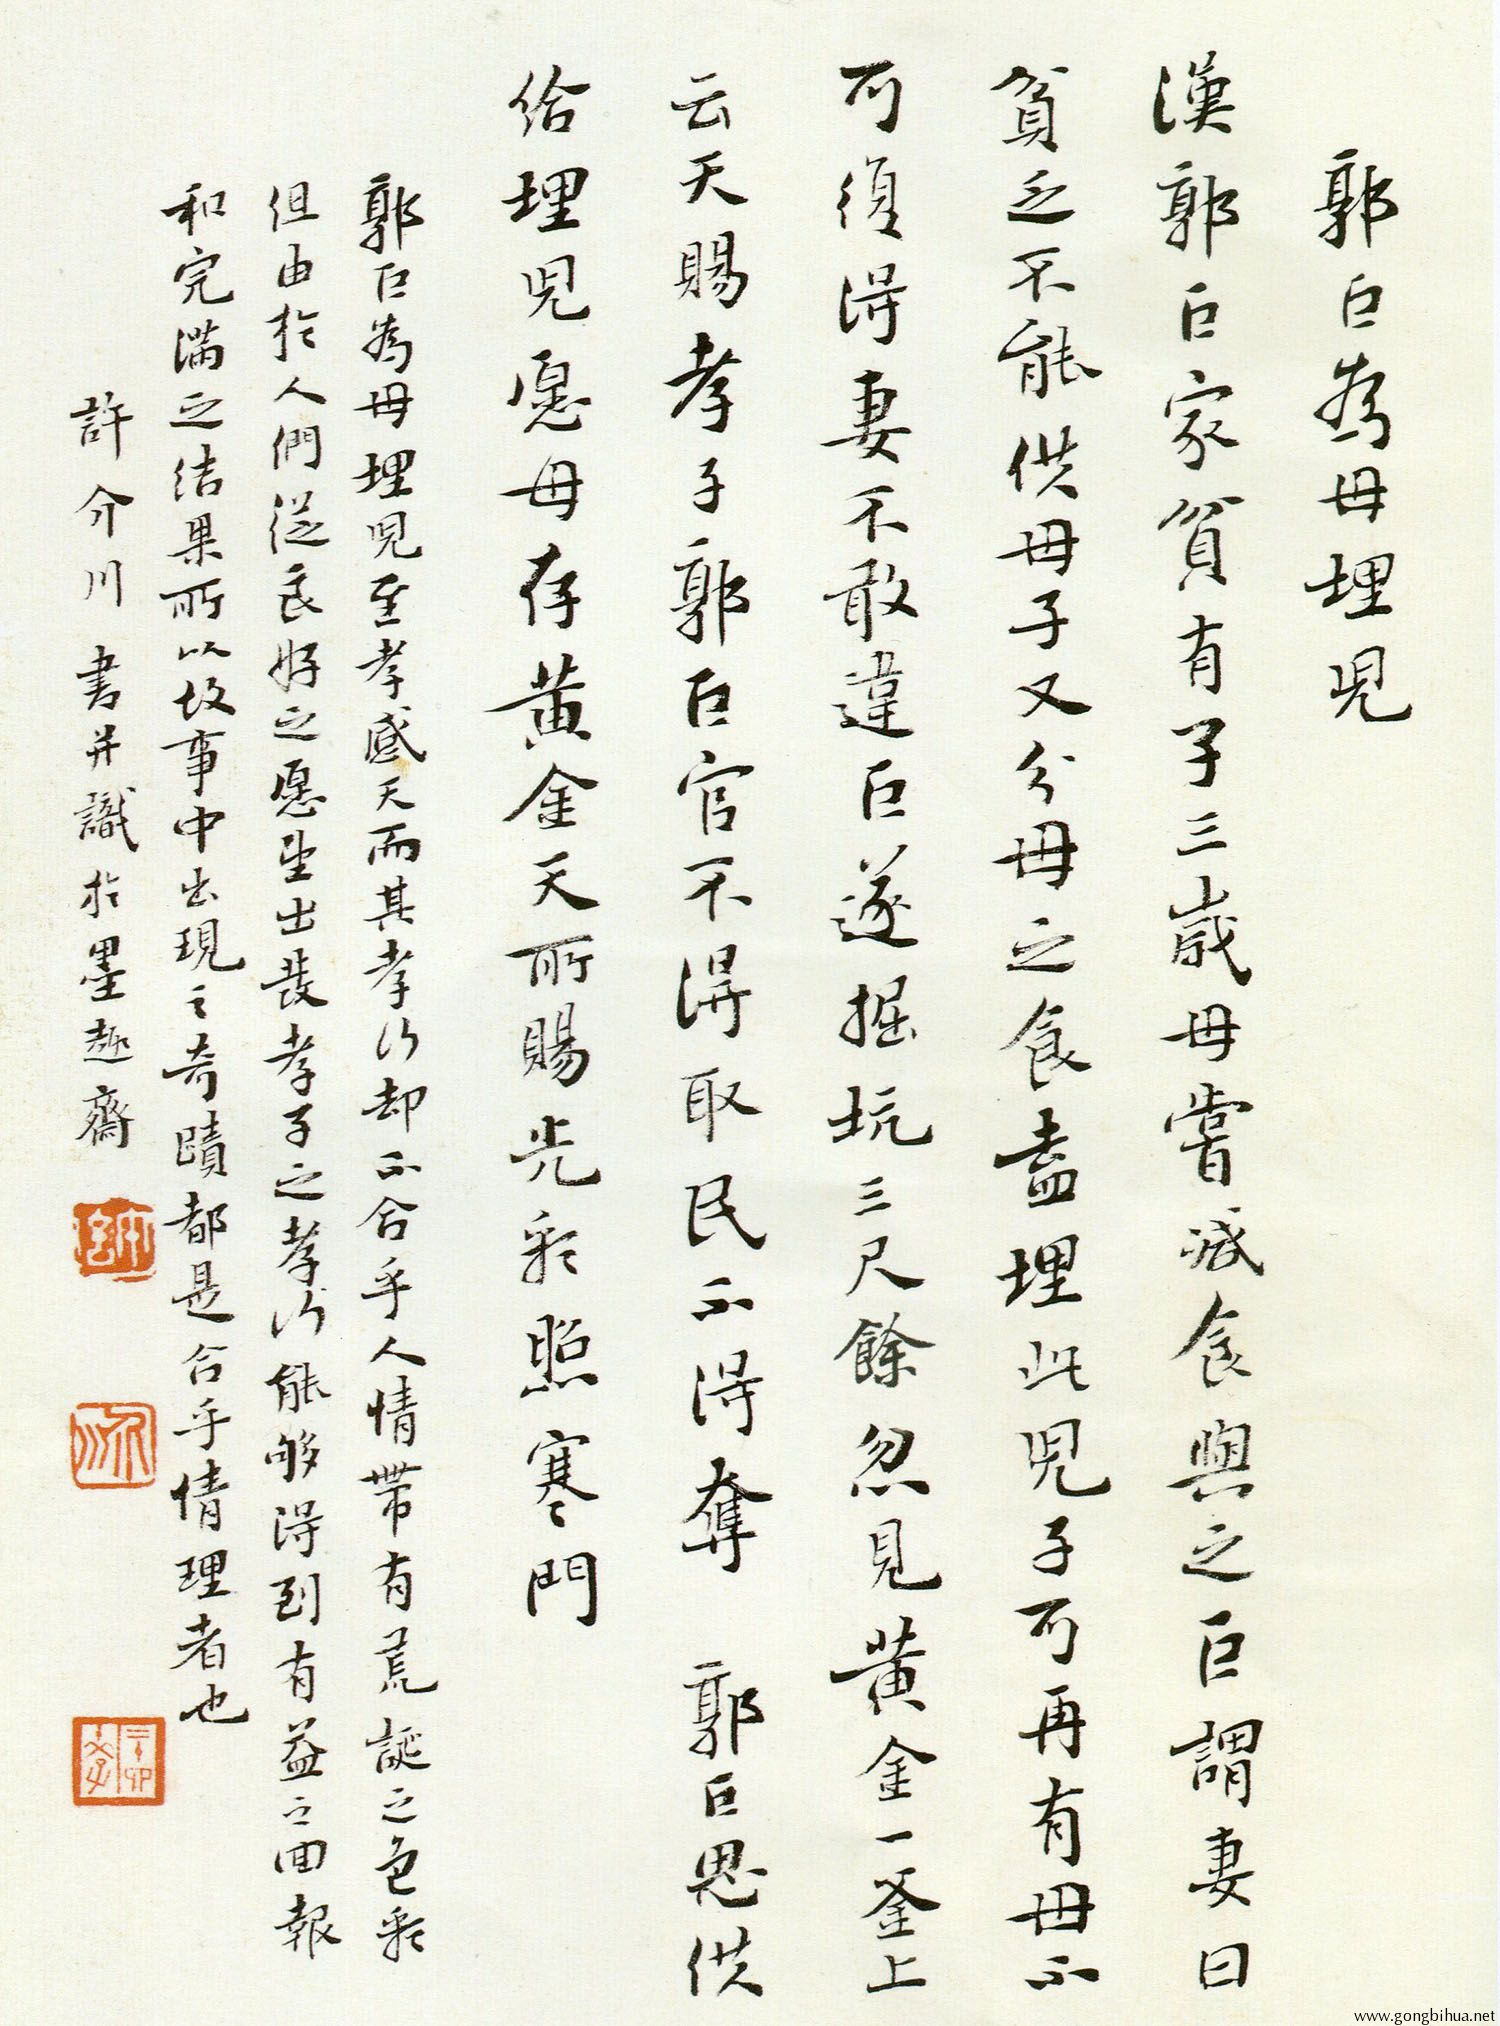 郭巨為母埋兒
漢郭巨家貧有子三歲母嘗減食與之巨謂妻曰
貧乏不能供母子又分母之食盍埋此兒子可再有母不
可復得妻不敢違巨遂掘坑三尺餘忽見黃金一釜上
云天賜孝子郭巨官不得取民不得奪 郭巨思供
給埋兒愿母存黃金天所賜光彩照寒門
郭巨為母埋兒至孝感天而其孝行却不合乎人情帶有荒誕之色彩
但由於人們從良好之愿望出發孝子之孝行能够得到有益之回報
和完滿之结果所以故事中出現之奇蹟都是合乎情理者也
許介川書并識於墨趣齋
www.gongbihua.net